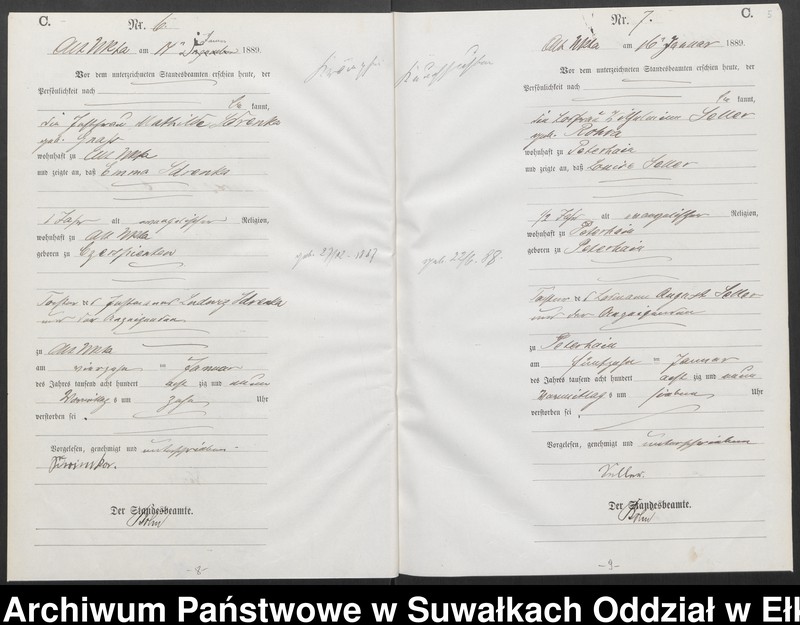 C.
Nr. 6.
Alt Ukta am 14 Januar 1889.
Vor dem unterzeichneten Standesbeamten erschien heute, der
Persönlichkeit nach
kannt,
die Mathilde
geb.
wohnhaft zu Alt Ukta
und zeigte an, daß Emma
1 Jahr alt evangelischer Religion,
wohnhaft zu Alt Ukta
geboren zu
geb. 27/12. 1887
Tochter des Ludwig
und der Anzeigenden
zu Alt Ukta
am vierzehn ten Januar
des Jahres tausend acht hundert acht zig und neun
Vormittags um zehn Uhr
verstorben sei.
Vorgelesen, genehmigt und unterschrieben
Der Standesbeamte.
Bohn
-8-
Nr. 7.
C.
5
Alt Ukta am 16 Januar 1889.
Vor dem unterzeichneten Standesbeamten erschien heute, der
Persönlichkeit nach
kannt,
die Losfrau Wilhelmine Seller
geb.
wohnhaft zu Peterhain
und zeigte an, daß Louise Seller
1/2 Jahr alt evangelischer Religion,
wohnhaft zu Peterhain
geboren zu Peterhain
geb. 22/6. 88.
Tochter des Losmann August Seller
und der Anzeigenden
zu Peterhain
am fünfzehn ten Januar
des Jahres tausend acht hundert acht zig und neun
Vormittags um sieben Uhr
verstorben sei
Vorgelesen, genehmigt und unterschrieben
Seller.
Der Standesbeamte.
Bohn
-9-
Archiwum Państwowe w Suwałkach Oddział w Ełk